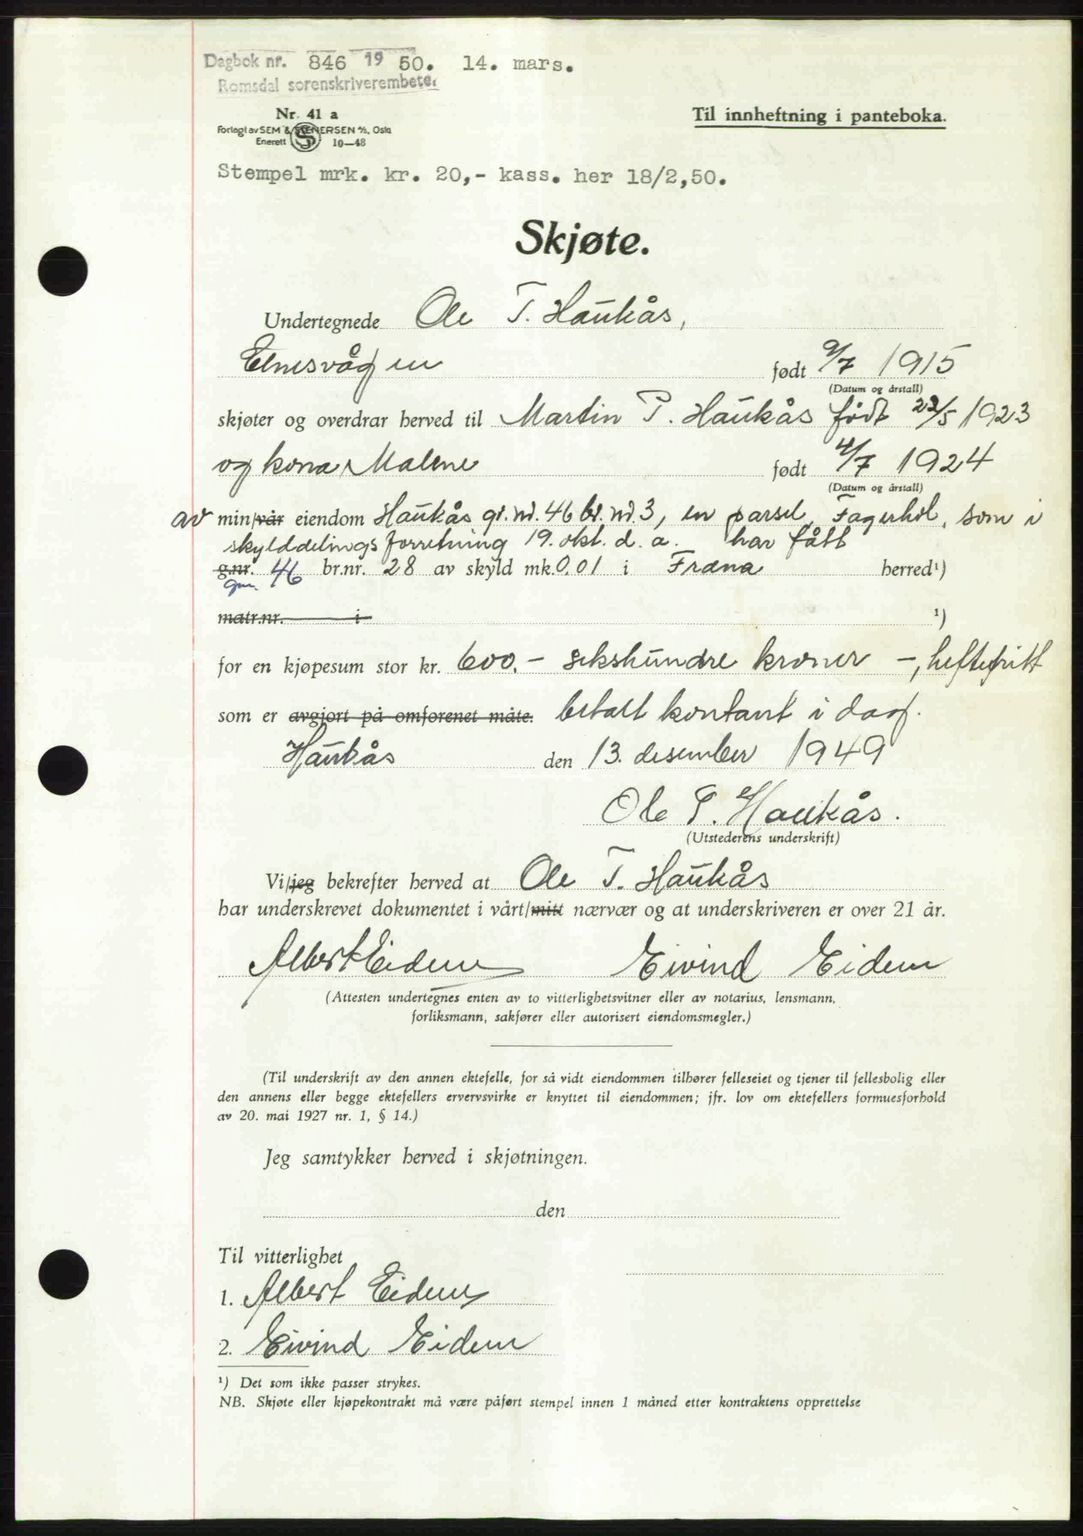 Dagbok nr. 846 1950. 14. mars.
Romsdal sorenskriverembete.
Nr. 41 a
Til innheftning i panteboka.
Forlagt av SEM & STENERSEN A/S, Oslo
Enerett 10—48
Stempel mrk. kr. 20,- kass. her 18/2,50.
Skjøte.
Undertegnede Ole T. Haukås,
Elnesvågen født 9/7 1915
(Datum og årstall)
skjøter og overdrar herved til Martin P. Haukås født 22/5 1923
og kona Malene født 4/7 1924
(Datum og årstall)
av min/vår eiendom Haukås gr. nr. 46 br. nr. 3, en parsel, Fagerhol, som i
skylddelingsforretning 19. okt. d. a. har fått
g.nr. gnr. 46 br.nr. 28 av skyld mk. 0.01 i Fræna herred¹)
matr.nr. i ¹)
for en kjøpesum stor kr. 600.- sekshundre kroner -, heftefritt
som er avgjort på omforenet måte. betalt kontant i dag.
Haukås den 13. desember 1949
Ole T. Haukås.
(Utstederens underskrift)
Vi/jeg bekrefter herved at Ole T. Haukås
har underskrevet dokumentet i vårt/mitt nærvær og at underskriveren er over 21 år.
Albert Eidem Eivind Eidem
(Attesten undertegnes enten av to vitterlighetsvitner eller av notarius, lensmann,
forliksmann, sakfører eller autorisert eiendomsmegler.)
(Til underskrift av den annen ektefelle, for så vidt eiendommen tilhører felleseiet og tjener til fellesbolig eller
den annens eller begge ektefellers ervervsvirke er knyttet til eiendommen; jfr. lov om ektefellers formuesforhold
av 20. mai 1927 nr. 1, § 14.)
Jeg samtykker herved i skjøtningen.
den
Til vitterlighet
1. Albert Eidem
2. Eivind Eidem
¹) Det som ikke passer strykes.
NB. Skjøte eller kjøpekontrakt må være påført stempel innen 1 måned etter kontraktens opprettelse